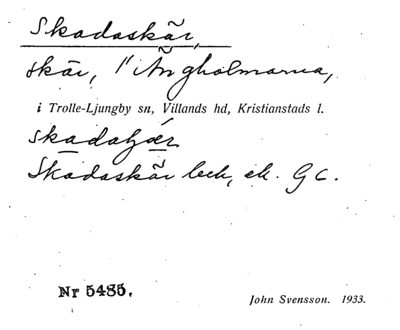 Skadaskär,
skär, i Ängholmarna,
i Trolle-Ljungby sn, Villands hd, Kristianstads l.
Skadaskär bek, ek. GC.
Nr 5485.
John Svensson. 1933.